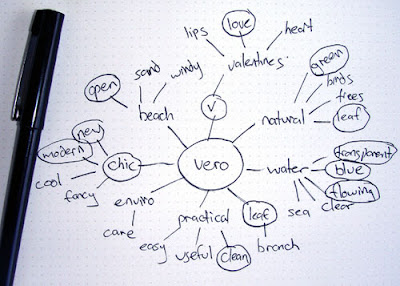 lips
love
heart
valentines
sand
windy
open
beach
V
green
birds
trees
leaf
natural
new
modern
chic
cool
fancy
vero
water
transparent
blue
flowing
clear
sea
enviro
care
practical
easy
useful
clean
leaf
branch